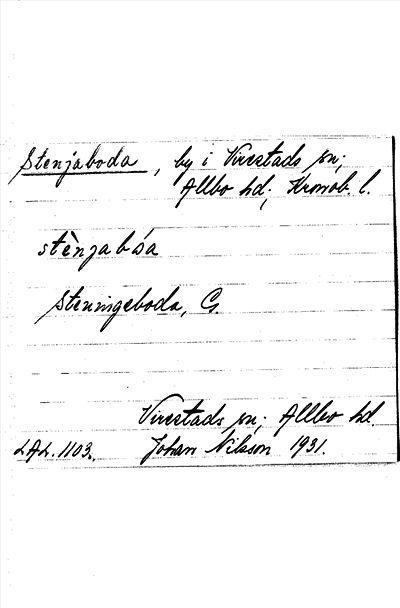 Stenjaboda, by i Virestads sn;
Allbo hd; Kronob. l.
stènjabóa
Steningeboda, G.
Virestads sn; Allbo hd.
LAL. 1103. Johan Nilsson 1931.